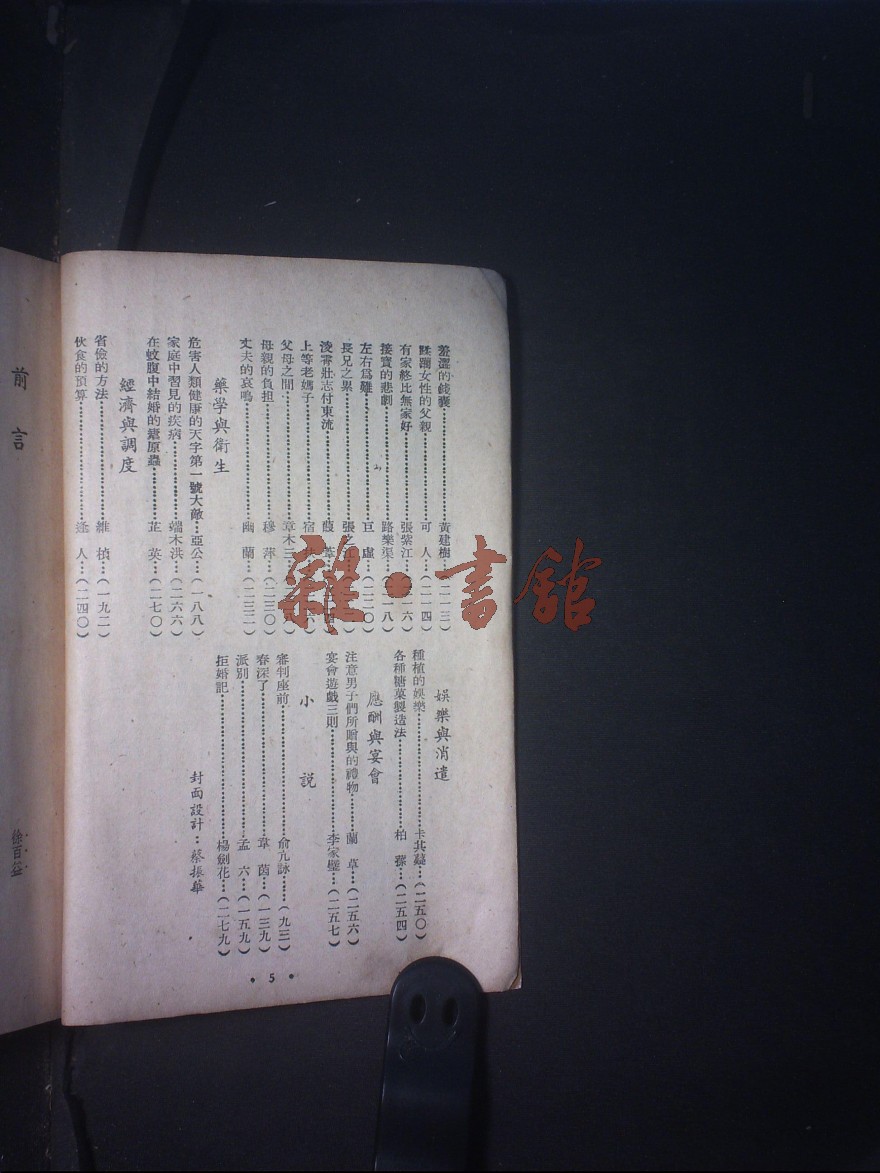 羞澀的錢囊……………黃建樹…(二一三)
蹂躪女性的父親………可 人…(二一四)
有家終比無家好………張紫江…(二一六)
接寶的悲劇……………路樂渠…(二一八)
左右為難………………巨 虛…(二二〇)
長兄之累………………張之江
淩霄壯志付東流………葭 葦
上等老媽子……………宿
父母之間………………章木三
母親的負担……………穆 萍…(二三〇)
丈夫的哀鳴……………幽 蘭…(二三二)
藥學與衛生
危害人類健康的天字第一號大敵…亞公…(一八八)
家庭中習見的疾病……端木洪…(二六六)
在蚊腹中結婚的瘧原蟲…芷 英…(二七〇)
經濟與調度
省儉的方法……………維 楨…(一九二)
伙食的預算……………逢 人…(二四〇)
娛樂與消遣
種植的娛樂……………卡其嘉…(二五〇)
各種糖菓製造法………柏 蓀…(二五四)
應酬與宴會
注意男子們所贈與的禮物…蘭 草…(二五六)
宴會遊戲三則…………李家璧…(二五七)
小 說
審判座前………………俞亢詠…(九三)
春深了…………………韋 茵…(一三九)
派別……………………孟 六…(一五九)
拒婚記…………………楊劍花…(二七九)
封面設計:蔡振華
• 5 •
前 言
徐百益
雜•書館